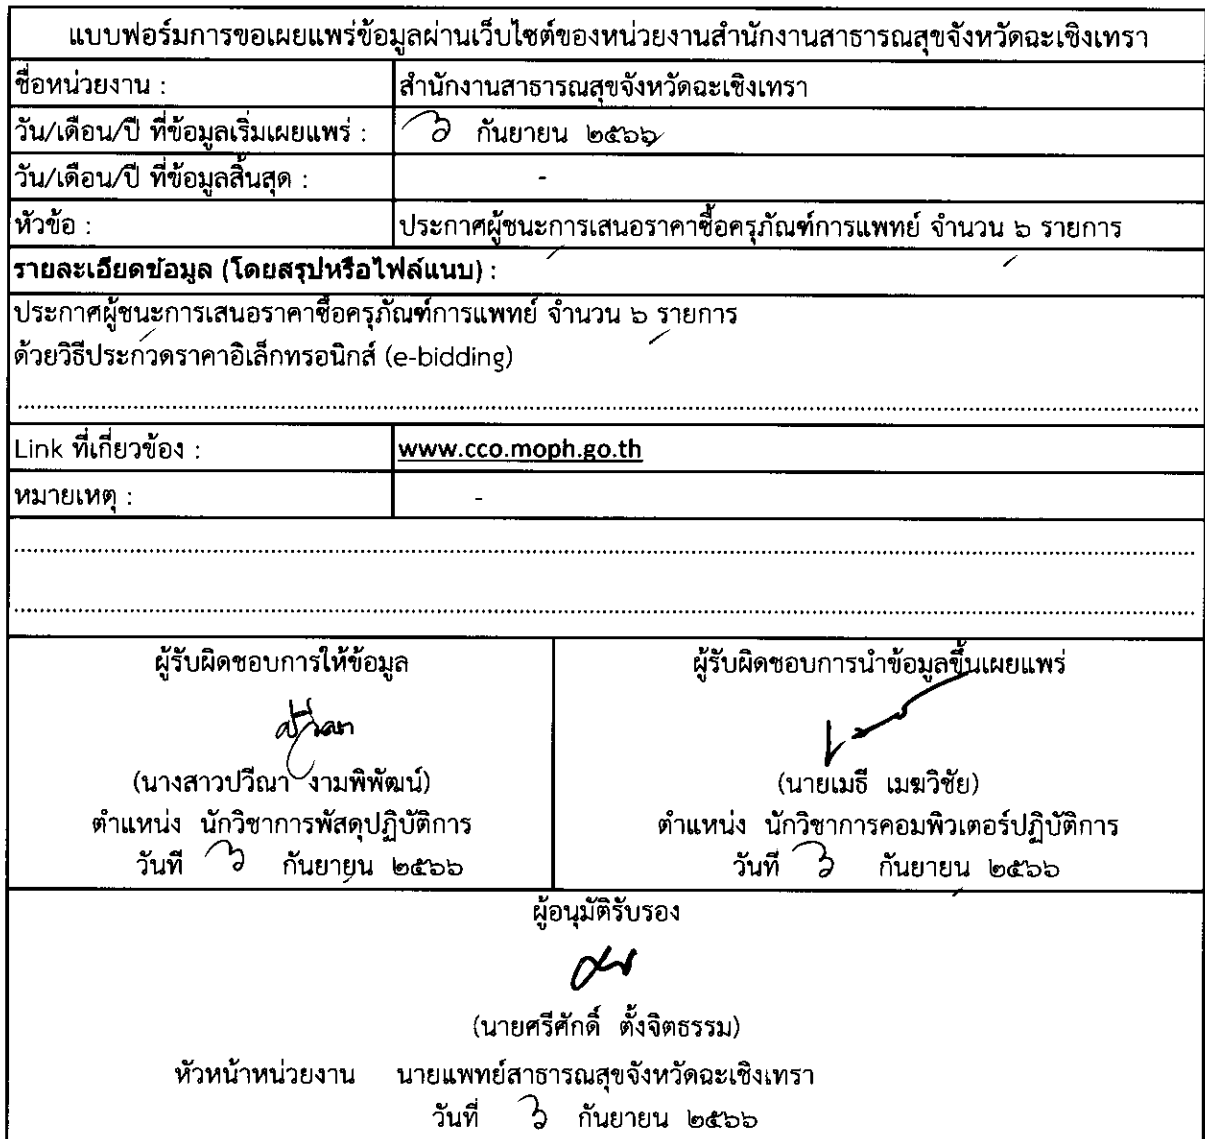 แบบฟอร์มการขอเผยแพร่ข้อมูลผ่านเว็บไซต์ของหน่วยงานสำนักงานสาธารณสุขจังหวัดฉะเชิงเทรา
ชื่อหน่วยงาน : สำนักงานสาธารณสุขจังหวัดฉะเชิงเทรา
วัน/เดือน/ปี ที่ข้อมูลเริ่มเผยแพร่ : ๖ กันยายน ๒๕๖๖
วัน/เดือน/ปี ที่ข้อมูลสิ้นสุด : -
หัวข้อ : ประกาศผู้ชนะการเสนอราคาซื้อครุภัณฑ์การแพทย์ จำนวน ๖ รายการ
รายละเอียดข้อมูล (โดยสรุปหรือไฟล์แนบ) :
ประกาศผู้ชนะการเสนอราคาซื้อครุภัณฑ์การแพทย์ จำนวน ๖ รายการ
ด้วยวิธีประกวดราคาอิเล็กทรอนิกส์ (e-bidding)
Link ที่เกี่ยวข้อง : www.cco.moph.go.th
หมายเหตุ : -
ผู้รับผิดชอบการให้ข้อมูล
ปวีณา
(นางสาวปวีณา งามพิพัฒน์)
ตำแหน่ง นักวิชาการพัสดุปฏิบัติการ
วันที่ ๖ กันยายน ๒๕๖๖
ผู้รับผิดชอบการนำข้อมูลขึ้นเผยแพร่
(นายเมธี เมฆวิชัย)
ตำแหน่ง นักวิชาการคอมพิวเตอร์ปฏิบัติการ
วันที่ ๖ กันยายน ๒๕๖๖
ผู้อนุมัติรับรอง
(นายศรีศักดิ์ ตั้งจิตธรรม)
หัวหน้าหน่วยงาน นายแพทย์สาธารณสุขจังหวัดฉะเชิงเทรา
วันที่ ๖ กันยายน ๒๕๖๖